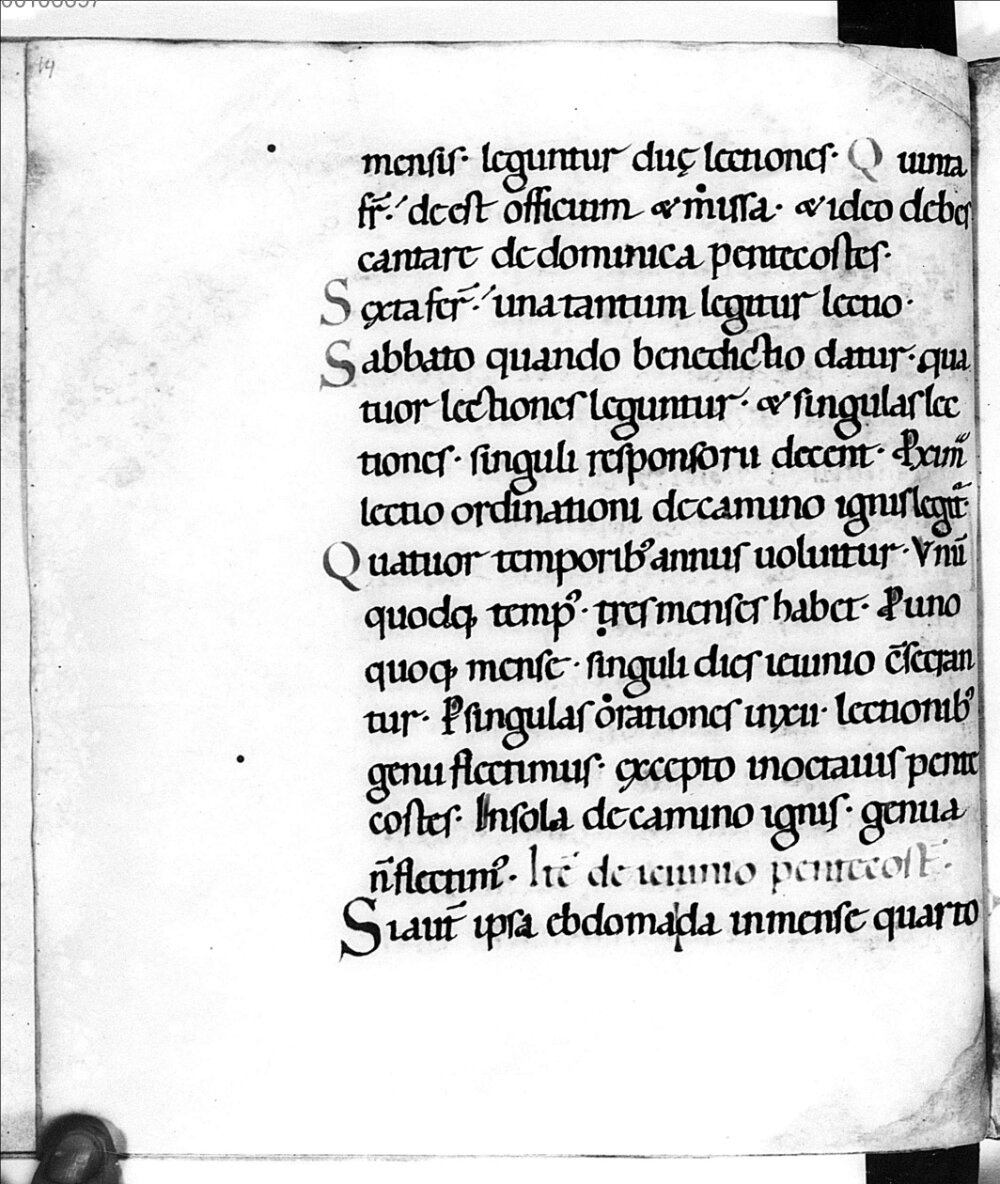 14
mensis· leguntur duę lectiones· Quinta
fr̄· deest officium & missa· & ideo debes
cantare de dominica pentecostes·
Sexta fer̄· una tantum legitur lectio·
Sabbato quando benedictio datur· qua
tuor lectiones leguntur· & singulas lec
tiones· singuli responsorii decent·
lectio ordinationi de camino ignis legit̄·
Quatuor temporib᾽ annus uoluitur· Vnū
quodq; temp᾽· tres menses habet· P uno
quoq; mense· singuli dies ieiunio c̄secran
tur· P singulas orationes in xii· lectionib᾽
genu flectimus· excepto in octauis pente
costes· In sola de camino ignis· genua
n̄ flectim᾽· Itē de ieiunio pentecost̄·
Si aut̄ ipsa ebdomada in mense quarto